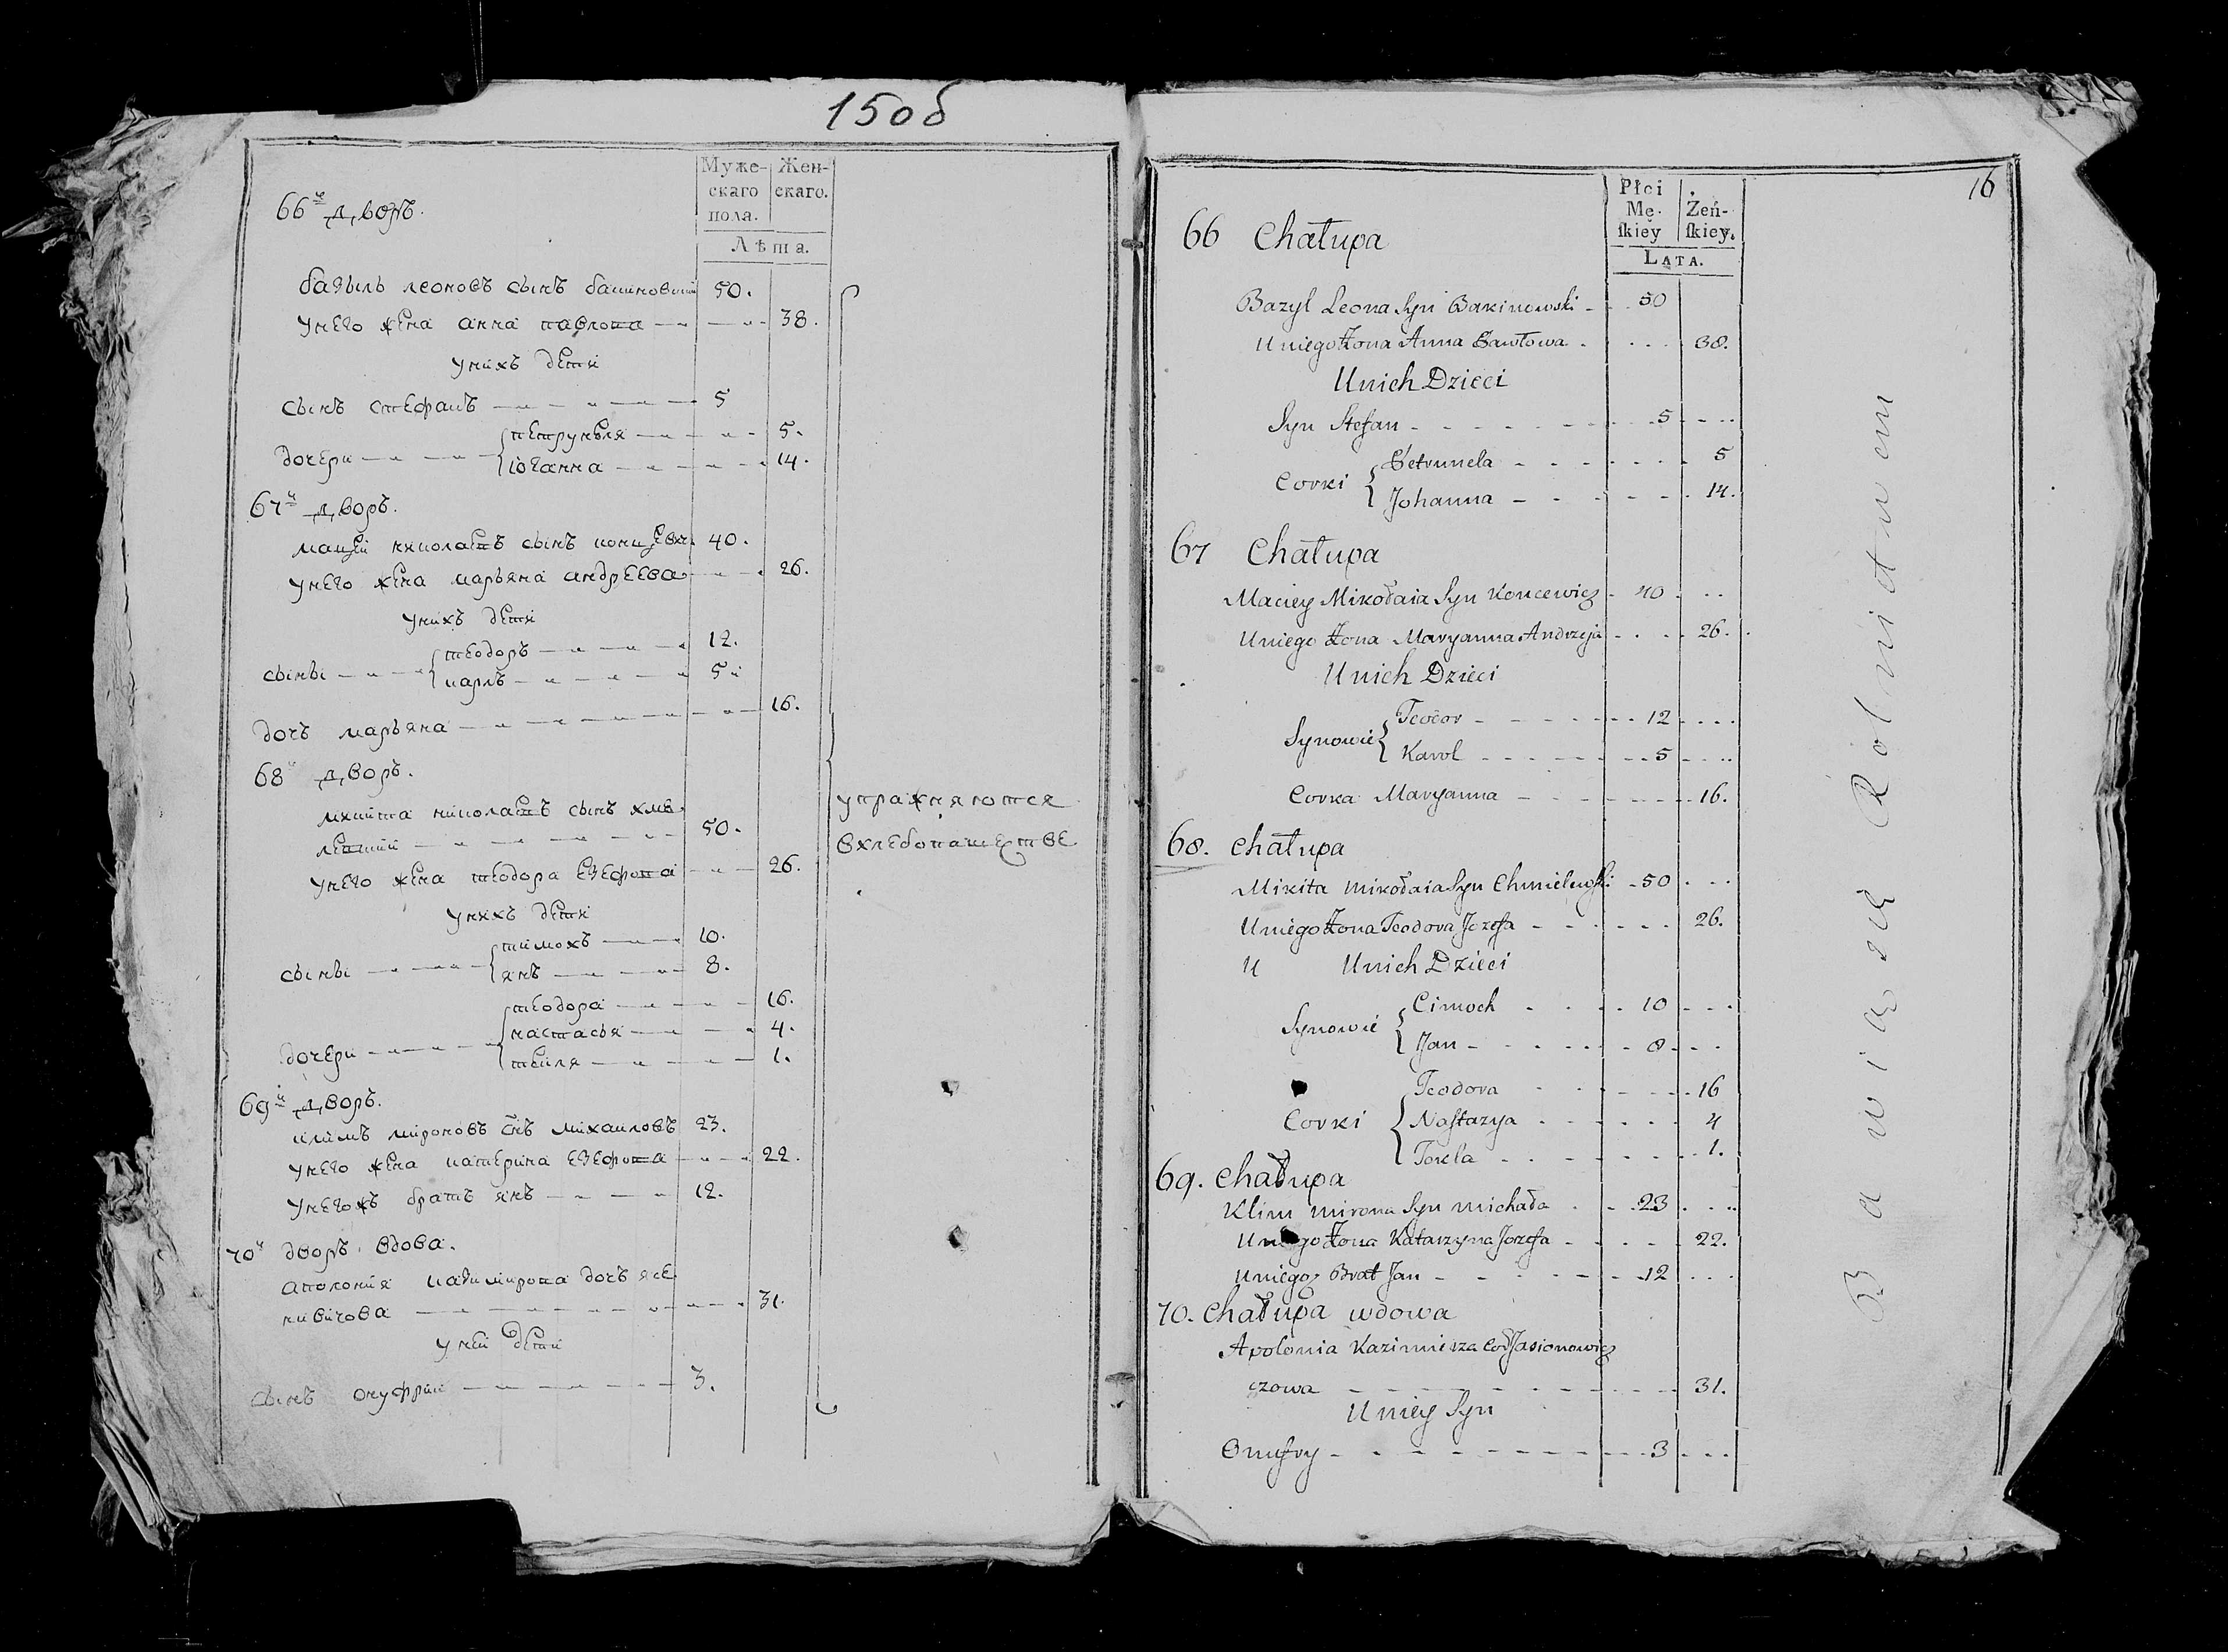 150б
Муже- Жен-
скаго скаго.
пола.
Лѣта.
66й дворъ.
базыль леоновъ сынъ бакиновский 50.
унего жена анна павлова 38.
унихъ дети
сынъ стефанъ 5
дочери петрунѣля 5.
иоганна 14.
67й дворъ.
мацей николаевъ сынъ концевич 40.
унего жена марьяна андреева 26.
унихъ дети
сыны теодоръ 12.
карлъ 5
дочь марьяна 16.
68й дворъ.
микита николаевъ сынъ хмѣ
левский 50.
унего жена теодора езефова 26.
унихъ дети
сыны тимохъ 10.
янъ 8.
дочери теодора 16.
настасья 4.
текля 1.
69й дворъ.
климъ мироновъ снъ михаиловъ 23.
унего жена катерина езефова 22.
унегожъ братъ янъ 12.
70й дворъ вдова.
аполония казимирова дочь ясе
новичова 31.
уней дети
сынъ онуфрий 3.
упражняются
вхлебопашестве
16
Płci Żeń-
Mę- skiey.
skiey
LATA.
66 Chałupa
Bazyl Leona Syn Bakinowski 50
U niego Żona Anna Pawłowa 38.
U nich Dzieci
Syn Stefan 5
Corki Petrunela 5
Johanna 14.
67 Chałupa
Maciey Mikołaia Syn Koncewicz 40
U niego Żona Maryanna Andrzeja 26.
U nich Dzieci
Synowie Teodor 12
Karol 5
Corka Maryanna 16.
68. Chałupa
Mikita Mikołaia Syn Chmielewski 50
U niego Żona Teodora Jozefa 26.
U U nich Dzieci
Synowie Cimoch 10
Jan 8
Teodora 16
Corki Nastazya 4
Tekla 1.
69. Chałupa
Klim Mirona Syn Michała 23
U niego Żona Katarzyna Jozefa 22.
U niegoz Brat Jan 12
70. Chałupa wdowa
Apolonia Kazimierza Cor Jasionowicz
czowa 31.
U niey Syn
Onufry 3
Bawią się Rolnictwem